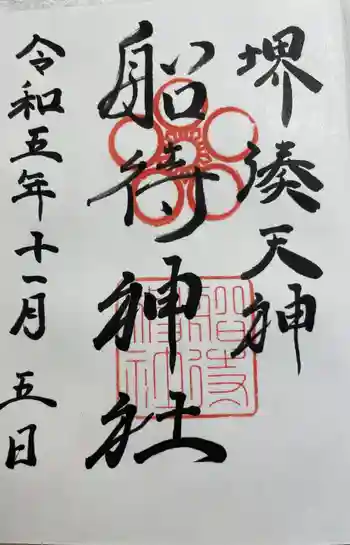 堺湊天神
船待神社
令和五年十一月五日
船待
神社